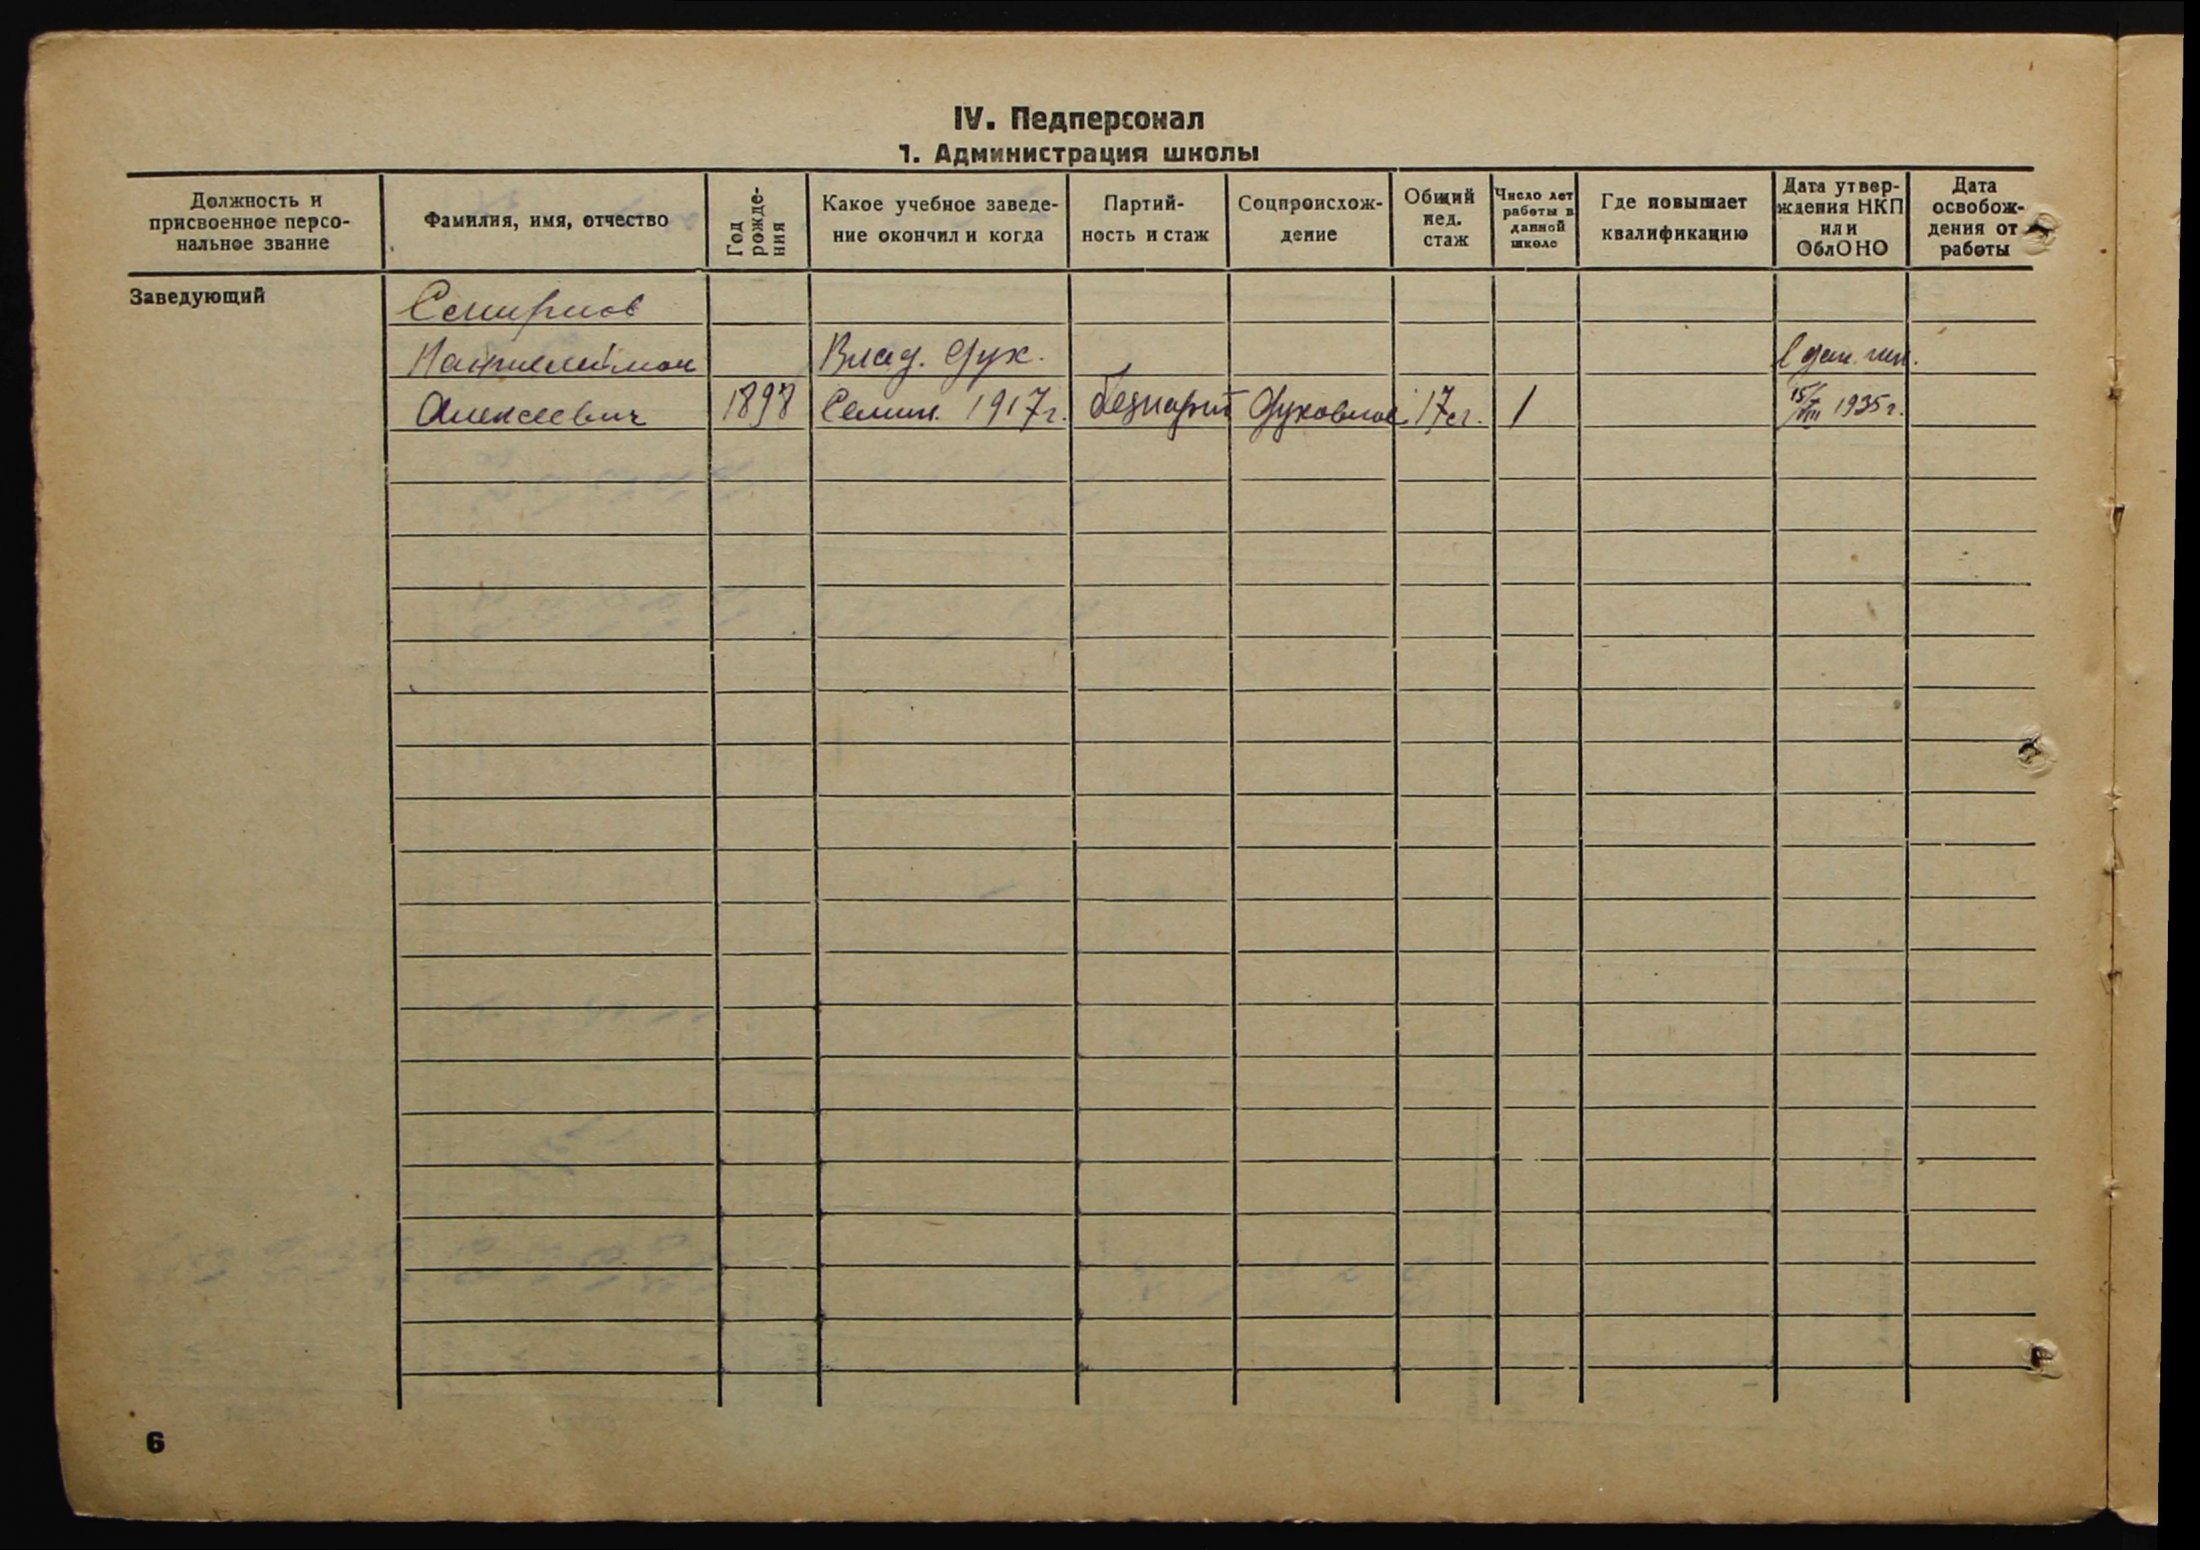 IV. Педперсонал
1. Администрация школы
Должность и
присвоенное персо-
нальное звание
Фамилия, имя, отчество
Год
рожде-
ния
Какое учебное заведе-
ние окончил и когда
Партий-
ность и стаж
Соцпроисхож-
дение
Общий
пед.
стаж
Число лет
работы в
данной
школе
Где повышает
квалификацию
Дата утвер-
ждения НКП
или
ОблОНО
Дата
освобож-
дения от
работы
Заведующий
Смирнов
Пантелеймон
Влад. дух.
В дан. шк.
Алексеевич
1898
Семин. 1917 г.
безпарт
Духовное
17 л.
1
15/VIII 1935 г.
6